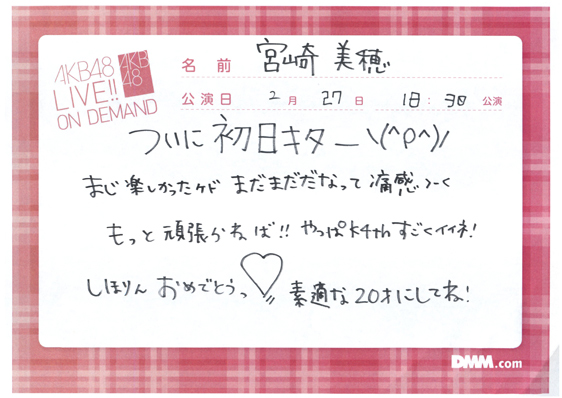 AKB48
LIVE!!
ON DEMAND
AKB
48
名前 宮崎 美穂
公演日 2月 27日 18:30 公演
ついに 初日キター \(^o^)/
まじ楽しかったケド まだまだだなって 痛感つーく
もっと頑張らねば!! やっぱK4thすごくイイネ!
しほりん おめでとうっ♡ 素適な20才にしてね!
DMM.com